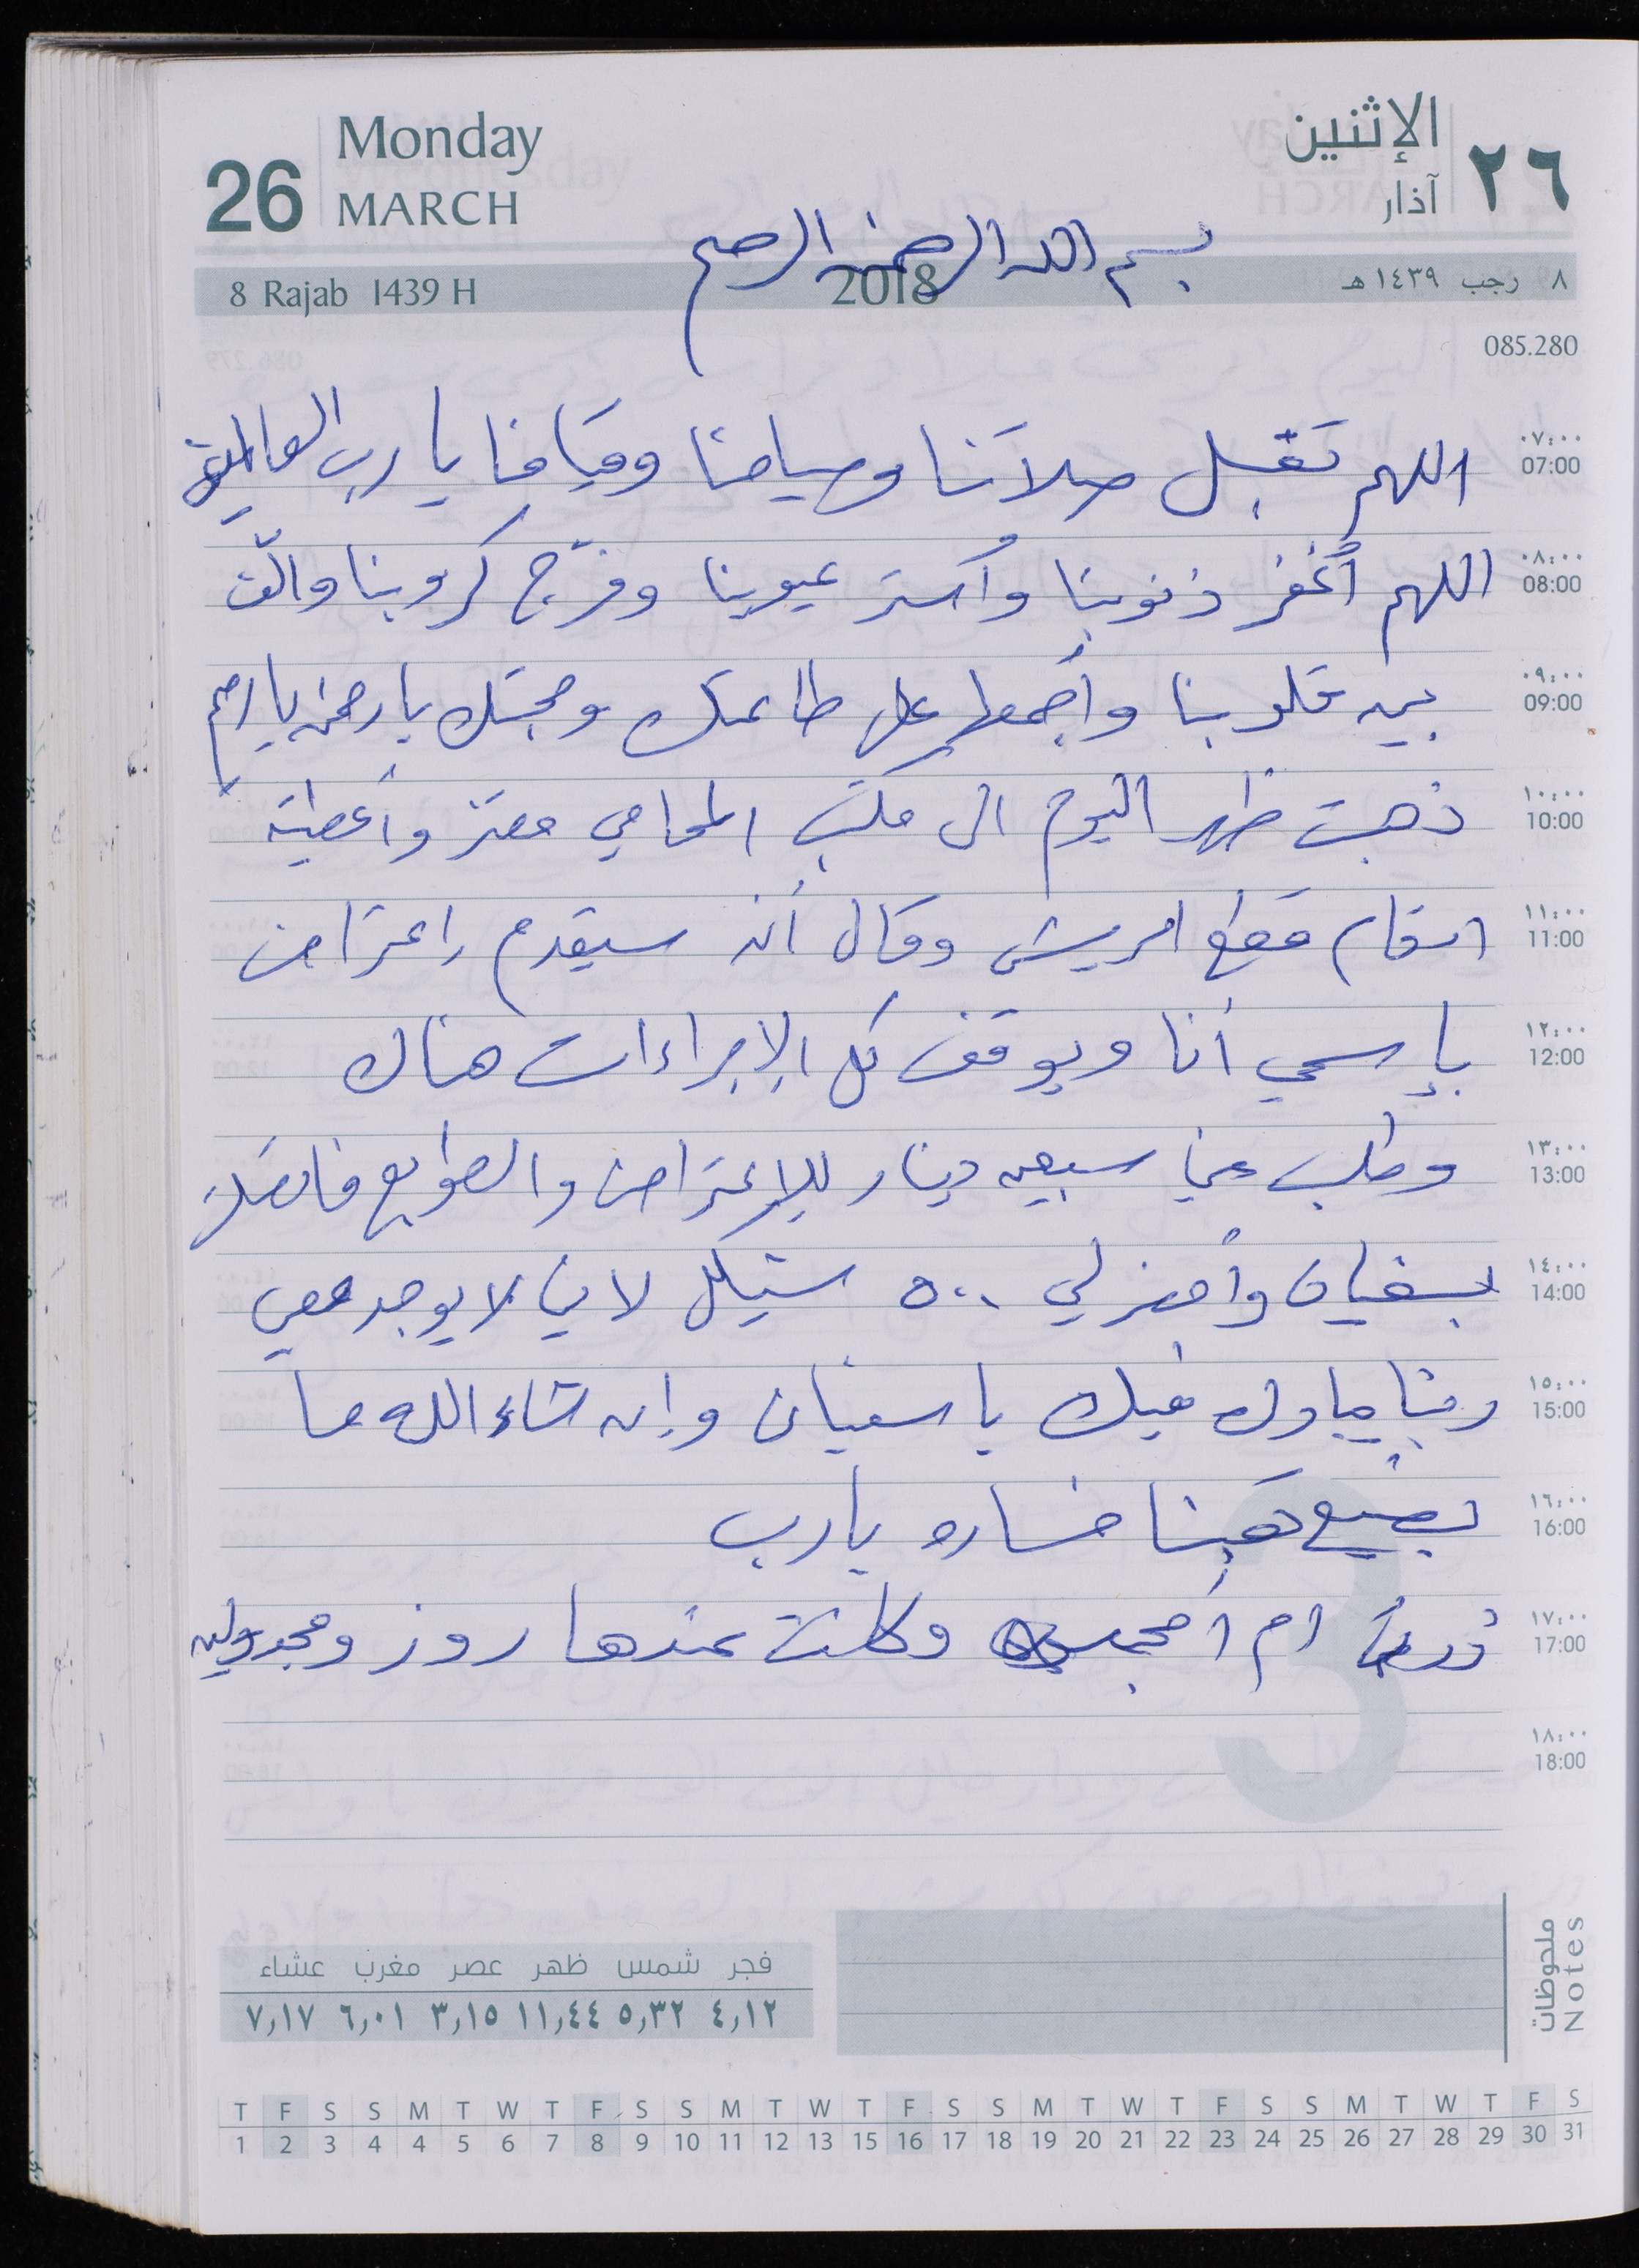 26 Monday MARCH
الإثنين ٢٦ آذار
بسم الله الرحمن الرحيم
8 Rajab 1439 H 2018 ٨ رجب ١٤٣٩ هـ
085.280
٠٧:٠٠ 07:00
اللهم تقبل صلاتنا وصيامنا وقيامنا يا رب العالمين
٠٨:٠٠ 08:00
اللهم أغفر ذنوبنا وأستر عيوبنا وفرّج كروبنا والّف
٠٩:٠٠ 09:00
بين قلوبنا وأجمعها على طاعتك ومحبتك يا رحمن يا رحيم
١٠:٠٠ 10:00
ذهبت ظهر اليوم الى مكتب المحامي معتز وأعطيته
١١:٠٠ 11:00
ارقام قطع الريش وقال أنه سيقدم إعتراض
١٢:٠٠ 12:00
بإسمي أنا ويوقف كل الإجراءات هناك
١٣:٠٠ 13:00
وطلب مني سبعين دينار للإعتراض والطوابع فاتصلت
١٤:٠٠ 14:00
بسفيان وأحضر لي ٥٠٠ شيكل لاني لا يوجد معي
١٥:٠٠ 15:00
ربنا يبارك فيك يا سفيان وإن شاء الله ما
١٦:٠٠ 16:00
بضيع تعبنا خساره يا رب
١٧:٠٠ 17:00
زرت ام أمجد وكانت عندها روز ومجدولين
١٨:٠٠ 18:00
ملحوظات Notes
فجر شمس ظهر عصر مغرب عشاء
٤,١٢ ٥,٣٢ ١١,٤٤ ٣,١٥ ٦,٠١ ٧,١٧
T F S S M T W T F S S M T W T F S S M T W T F S S M T W T F S
1 2 3 4 4 5 6 7 8 9 10 11 12 13 15 16 17 18 19 20 21 22 23 24 25 26 27 28 29 30 31